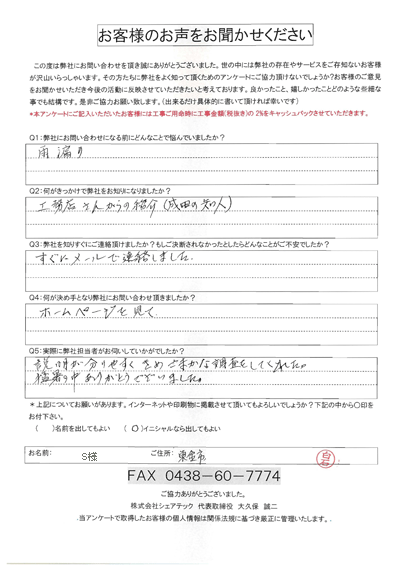 お客様のお声をお聞かせください
この度は弊社にお問い合わせを頂き誠にありがとうございました。世の中には弊社の存在やサービスをご存知ないお客様
が沢山いらっしゃいます。その方たちに弊社をよく知って頂くためのアンケートにご協力頂けないでしょうか?お客様のご意見
をお聞かせいただき今後の活動に反映させていただきたいと考えております。良かったこと、嬉しかったことどのような些細な
事でも結構です。是非ご協力お願い致します。(出来るだけ具体的に書いて頂ければ幸いです)
*本アンケートにご記入いただいたお客様には工事ご用命時に工事金額(税抜き)の2%をキャッシュバックさせていただきます。
Q1:弊社にお問い合わせになる前にどんなことで悩んでいましたか?
雨漏り
Q2:何がきっかけで弊社をお知りになりましたか?
工務店さんからの紹介(成田の知人)
Q3:弊社を知りすぐにご連絡頂けましたか?もしご決断されなかったとしたらどんなことがご不安でしたか?
すぐにメールで連絡しました。
Q4:何が決め手となり弊社にお問い合わせ頂きましたか?
ホームページを見て
Q5:実際に弊社担当者がお伺いしていかがでしたか?
説明が分りやすくきめこまかな調査をしてくれた。
猛暑の中ありがとうございました。
*上記についてお願いがあります。インターネットや印刷物に掲載させて頂いてもよろしいでしょうか?下記の中から〇印を
お付け下さい。
( )名前を出してもよい (〇)イニシャルなら出してもよい
お名前: S様 ご住所:
FAX 0438-60-7774
ご協力ありがとうございました。
株式会社シェアテック 代表取締役 大久保 誠二
当アンケートで取得したお客様の個人情報は関係法規に基づき厳正に管理いたします。